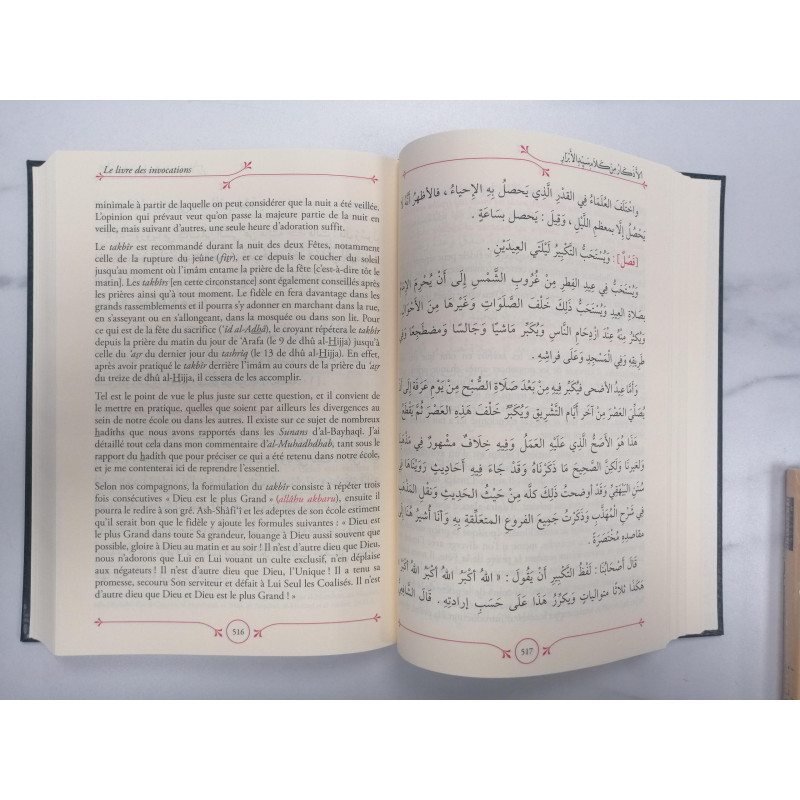 Le livre des invocations
minimale à partir de laquelle on peut considérer que la nuit a été veillée.
L'opinion qui prévaut veut qu'on passe la majeure partie de la nuit en
veille, mais suivant d'autres, une seule heure d'adoration suffit.
Le takbîr est recommandé durant la nuit des deux Fêtes, notamment
celle de la rupture du jeûne (fitr), et ce depuis le coucher du soleil
jusqu'au moment où l'imâm entame la prière de la fête [c'est-à-dire tôt le
matin]. Les takbîrs [en cette circonstance] sont également conseillés après
les prières ainsi qu'à tout moment. Le fidèle en fera davantage dans les
grands rassemblements et pourra s'y adonner en marchant dans la rue,
en s'asseyant ou en s'allongeant, dans la mosquée ou dans son lit. Pour
ce qui est de la fête du sacrifice ('îd al-Adhâ), le croyant répétera le takbîr
depuis la prière du matin du jour de 'Arafa (le 9 de dhû al-Hijja) jusqu'à
celle du 'asr du dernier jour du tashrîq (le 13 de dhû al-Hijja). En effet,
après avoir pratiqué le takbîr derrière l'imâm au cours de la prière du 'asr
du treize de dhû al-Hijja, il cessera de les accomplir.
Tel est le point de vue le plus juste sur cette question, et il convient de
le mettre en pratique, quelles que soient par ailleurs les divergences au
sein de notre école ou dans les autres. Il existe sur ce sujet de nombreux
hadîths que nous avons rapportés dans les Sunans d'al-Bayhaqî. J'ai
détaillé tout cela dans mon commentaire d'al-Muhadhdhab, tant sous le
rapport du hadîth que pour préciser ce qui a été retenu dans notre école,
et je me contenterai ici de reprendre l'essentiel.
Selon nos compagnons, la formulation du takbîr consiste à répéter trois
fois consécutives « Dieu est le plus Grand » (allâhu akbaru), ensuite il
pourra le redire à son gré. Ash-Shâfi'î et les adeptes de son école estiment
qu'il serait bon que le fidèle y ajoute les formules suivantes : « Dieu est
le plus Grand dans toute Sa grandeur, louange à Dieu aussi souvent que
possible, gloire à Dieu au matin et au soir ! Il n'est d'autre dieu que Dieu,
nous n'adorons que Lui en Lui vouant un culte exclusif, n'en déplaise
aux négateurs ! Il n'est d'autre dieu que Dieu, l'Unique ! Il a tenu sa
promesse, secouru Son serviteur et défait à Lui Seul les Coalisés. Il n'est
d'autre dieu que Dieu et Dieu est le plus Grand ! »
516
الأذكار من كلام سيد الأبرار
واختَلَفَ العُلَمَاءُ فِي القَدْرِ الَّذِي يَحصلُ بِهِ الإحياءُ ، فالأظهرُ أنَّهُ لَا
يَحصُلُ إلَّا بمعظمِ اللَّيْلِ ، وَقِيلَ : يَحصل بسَاعَةٍ .
[فَصْلٌ] : وَيُسْتَحَبُّ التَّكْبِيرُ لَيْلَتَي العِيدَيْنِ .
وَيُسْتَحَبُّ فِي عِيدِ الفِطرِ مِنْ غُروبِ الشَّمْسِ إِلَى أَنْ يُحْرِمَ
بصَلَاةِ العِيدِ وَيُسْتَحَبُّ ذَلِكَ خَلْفَ الصَّلَوَاتِ وَغَيْرِهَا مِنَ الأَحْوَالِ
وَيُكثرُ مِنْهُ عِنْدَ ازدِحَامِ النَّاسِ وَيُكَبِّرُ مَاشِيًا وَجَالِسًا وَمضطَجِعًا وَفِي
طريقِهِ وَفِي المَسْجِدِ وَعَلَى فِراشِهِ .
وَأمَّا عِيدُ الأضحى فَيُكَبِّرُ فِيهِ مِنْ بَعْدِ صَلَاةِ الصُّبْحِ مِنْ يَوْمِ عَرَفَةَ إِلَى أَنْ
يُصَلِّيَ العَصْرَ مِنْ آخرِ أيَّامِ التَّشْرِيقِ وَيُكَبِّرُ خَلْفَ هَذِهِ العَصْرِ ثُمَّ يَقْطَعُ
هَذَا هُوَ الأَصَحُّ الَّذِي عَلَيْهِ العَمَلُ وَفِيهِ خِلَافٌ مَشهورٌ فِي
وَلغيرِنَا وَلَكِنَّ الصَّحِيحَ مَا ذَكَرْنَاهُ وَقَدْ جَاءَ فِيهِ أَحَادِيثُ رَوَيْنَاهَا فِي
سُنَنِ البَيْهَقِيِّ وَقَدْ أوضحتُ ذَلِكَ كلَّه مِنْ حَيْثُ الحَدِيثِ وَنقلِ
فِي شَرْحِ المُهَذَّبِ وَذَكَرْتُ جَمِيعَ الفروعِ المتعلِّقةِ بِهِ وَأَنَا أُشيرُ هُنَا إِلَى
مقاصدِهِ مُخْتَصَرَةً .
قَالَ أَصْحَابُنَا : لَفْظُ التَّكْبِيرِ أَنْ يَقُولَ : « اللهُ أَكْبَرُ اللهُ أَكْبَرُ اللهُ
هَكَذَا ثلاثًا متوالياتٍ وَيكرِّرُ هَذَا عَلَى حَسَبِ إرادتِهِ . قَالَ
517